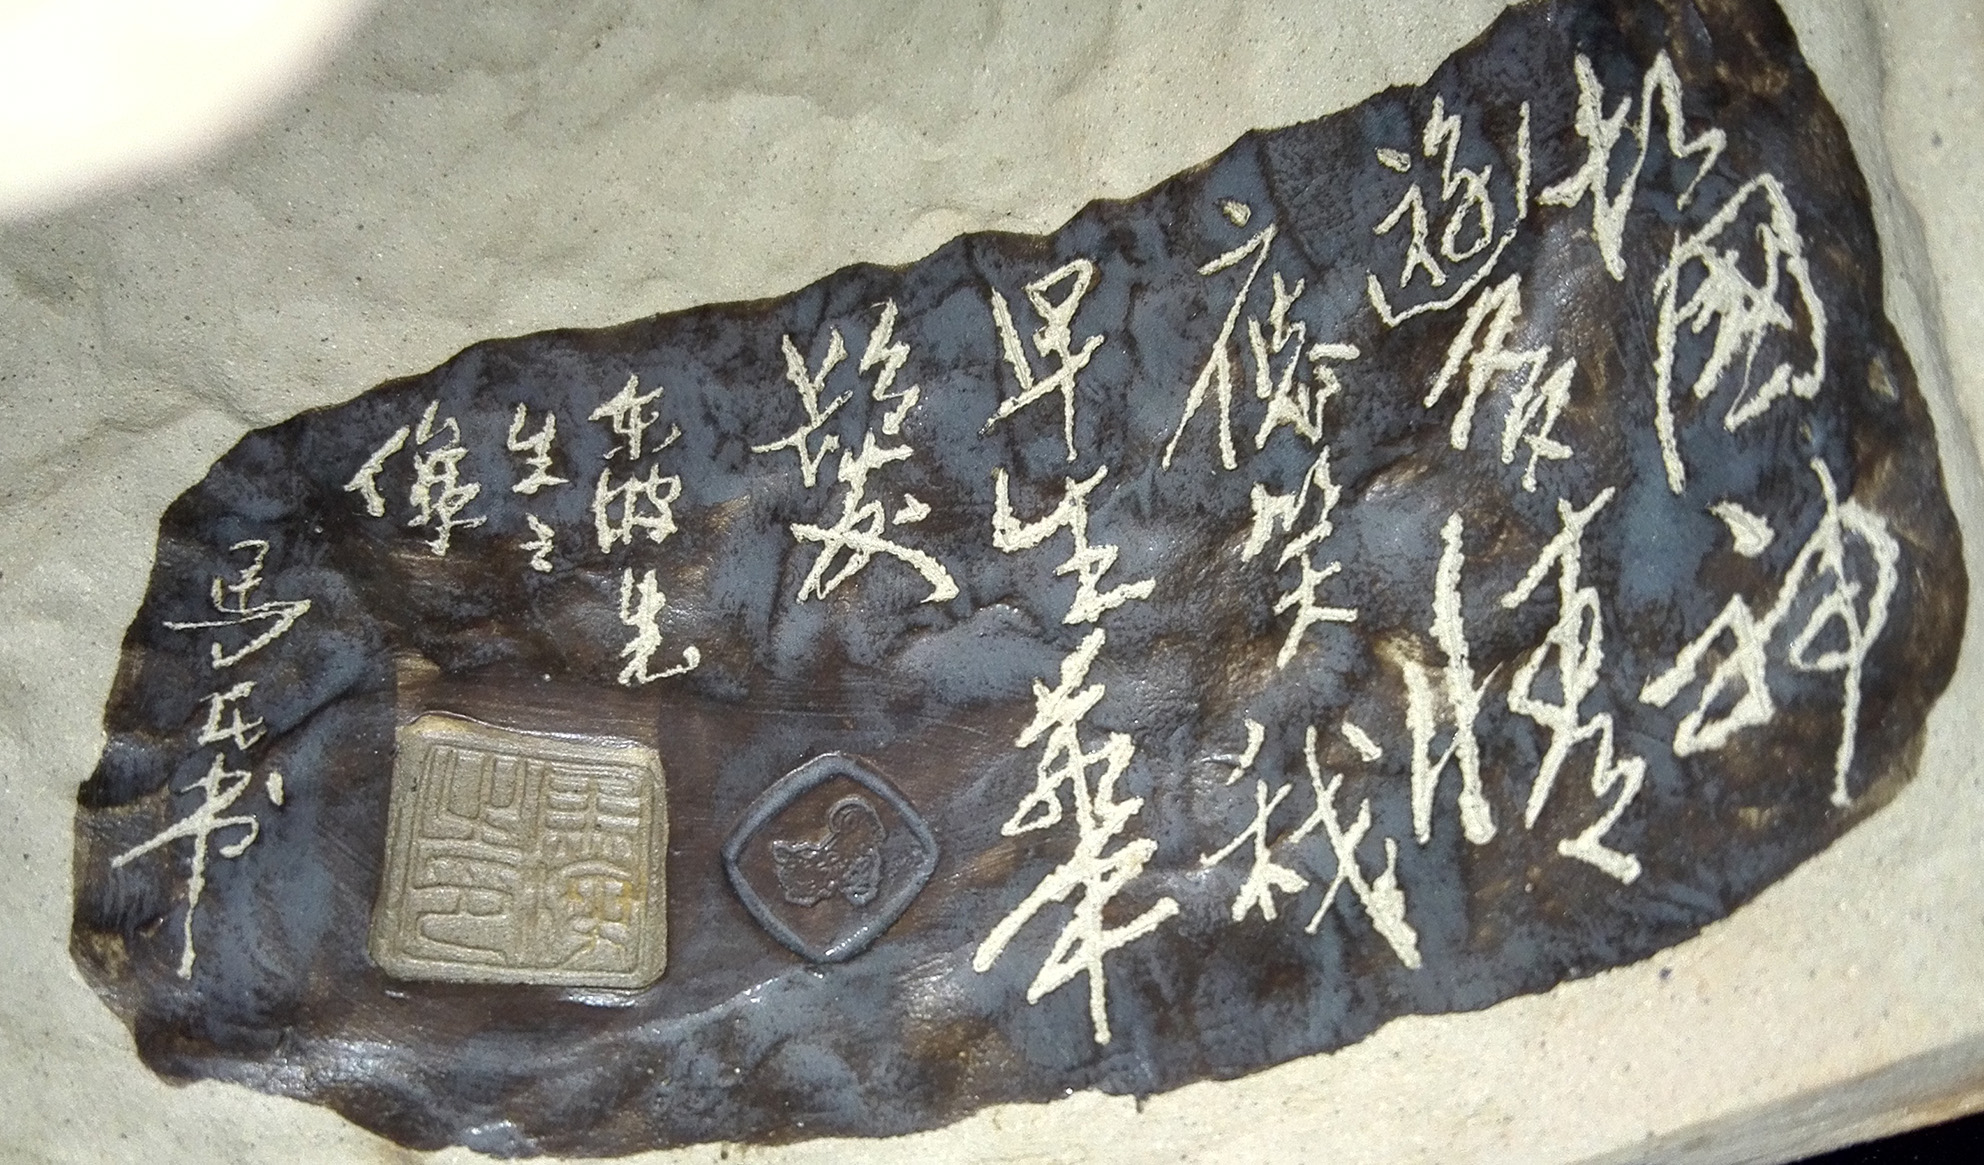 故國神
遊多情
應笑我
早生華
髮
东坡先
生之
像
书